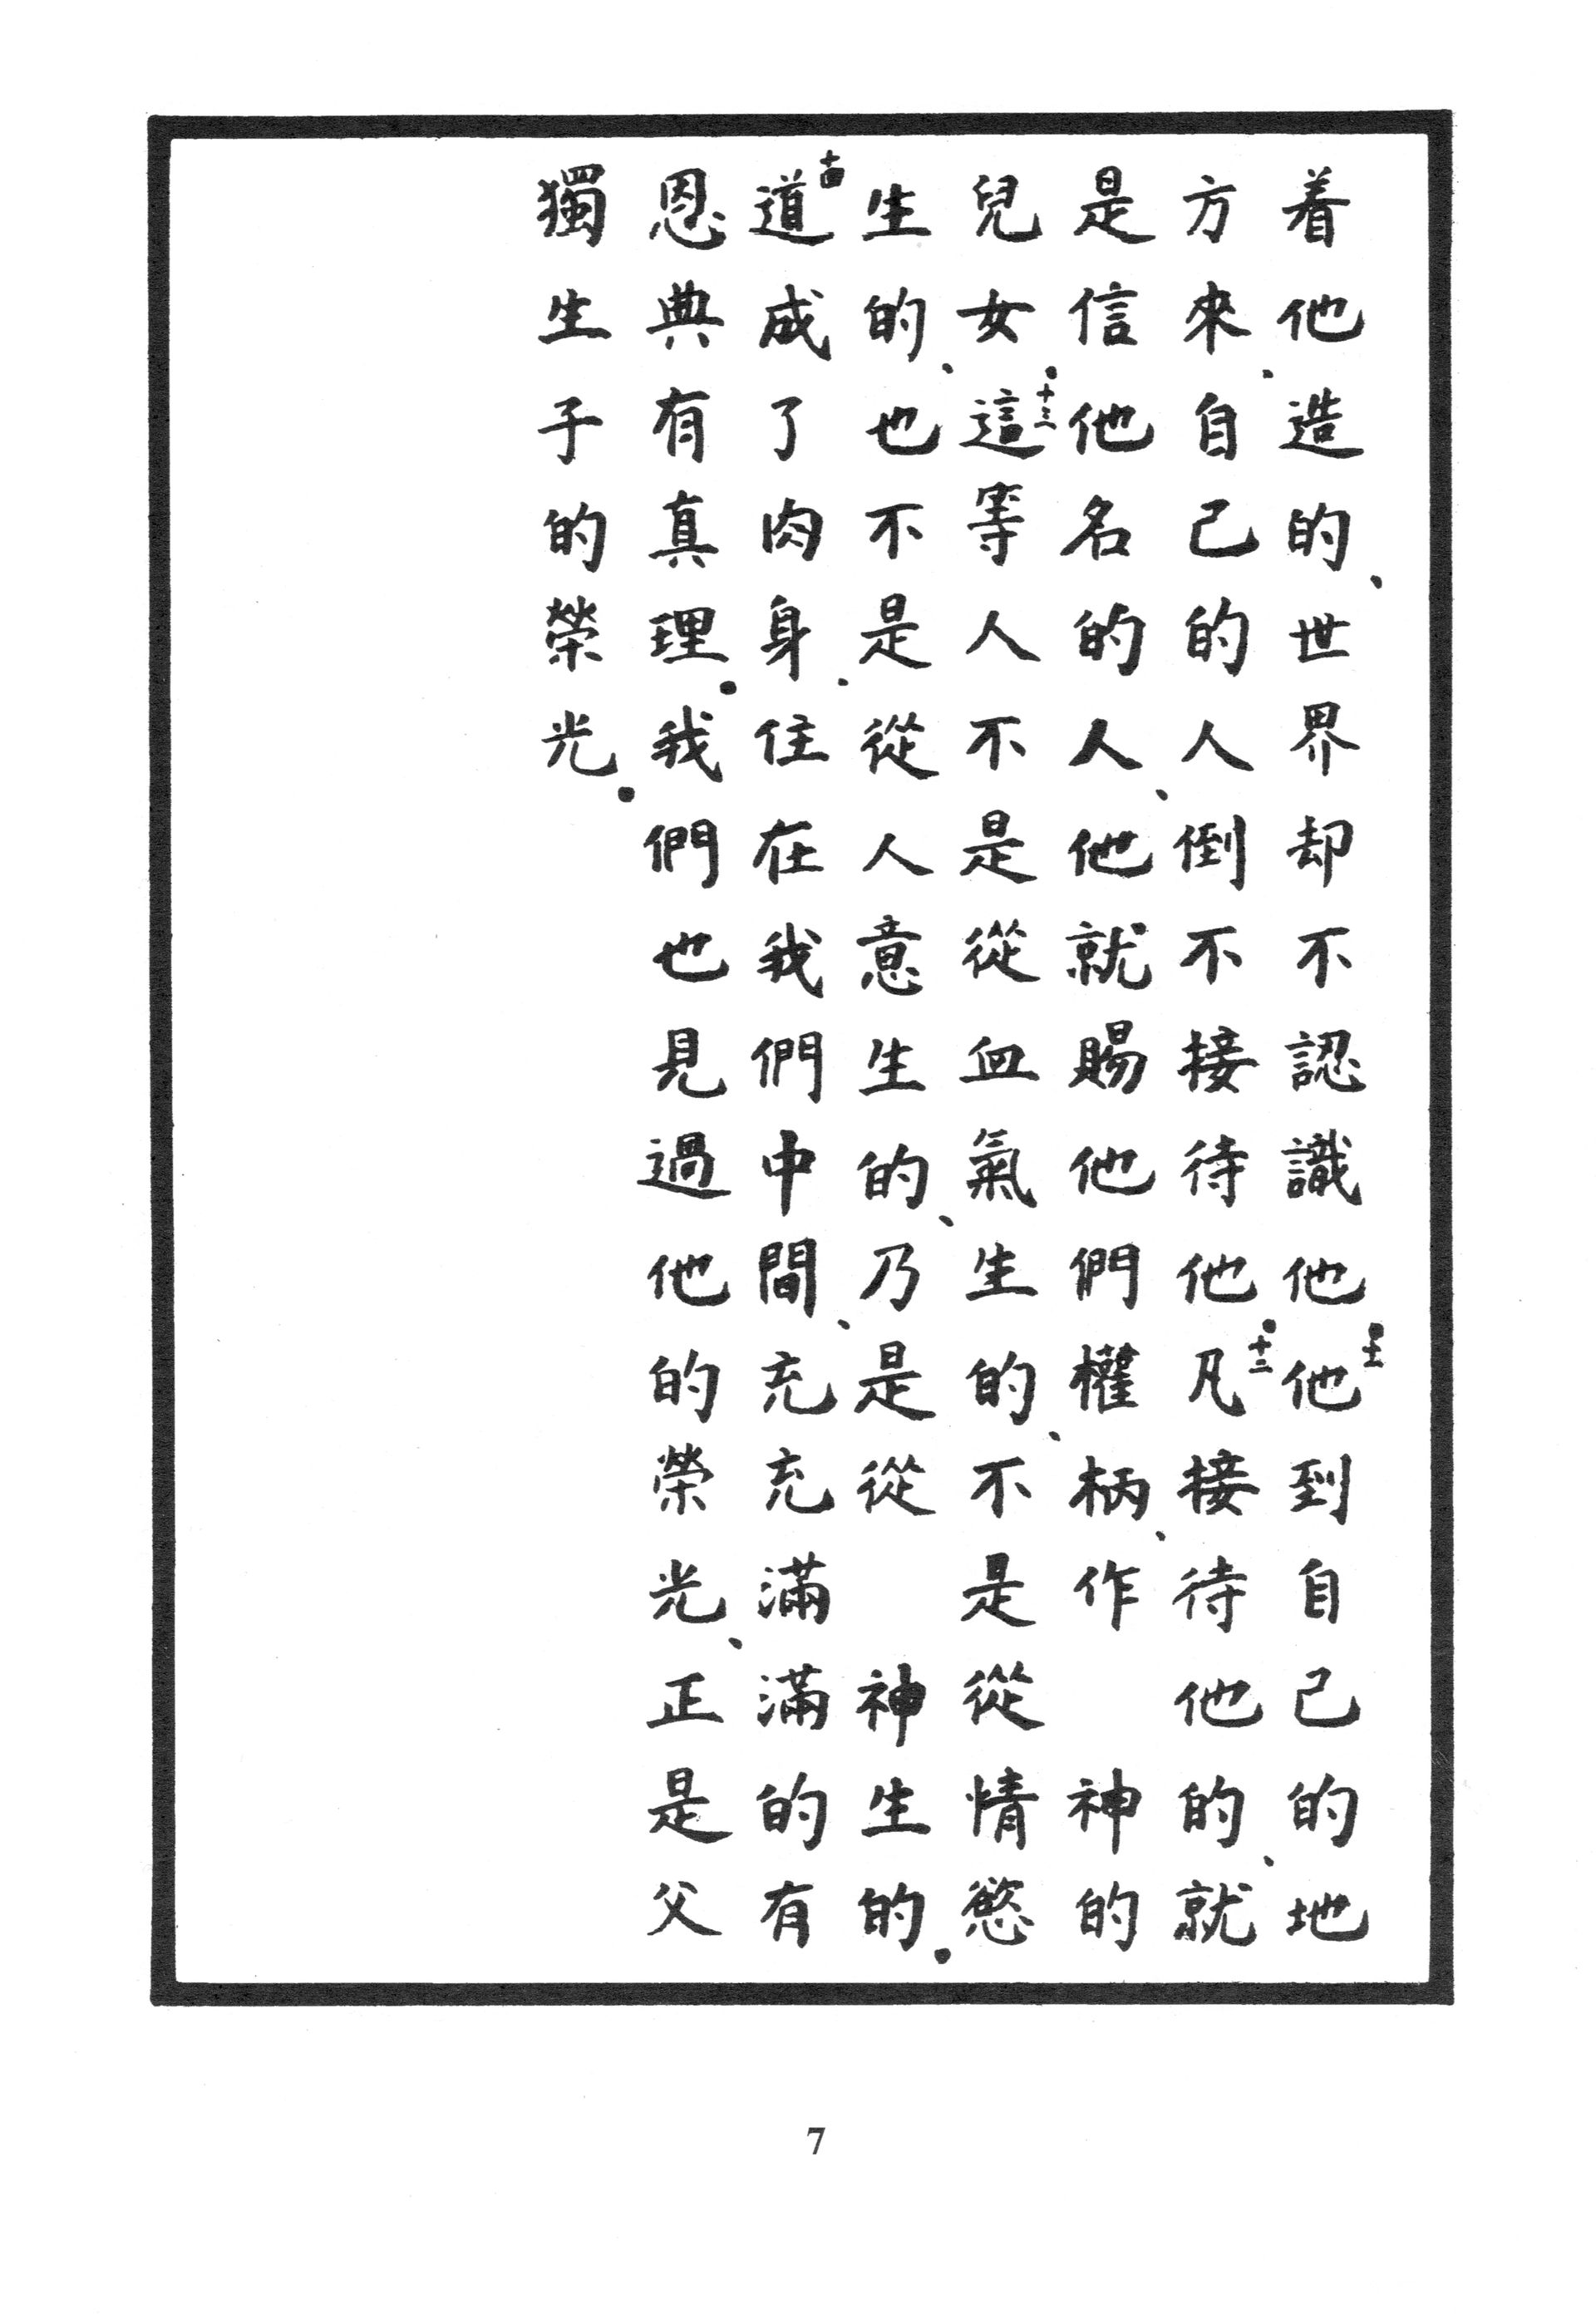 着他造的、世界却不認識他。十一他到自己的地
方來、自己的人倒不接待他。十二凡接待他的、就
是信他名的人、他就賜他們權柄、作　神的
兒女。十三這等人不是從血氣生的、不是從情慾
生的、也不是從人意生的、乃是從　神生的。
十四道成了肉身、住在我們中間、充充滿滿的有
恩典有真理。我們也見過他的榮光、正是父
獨生子的榮光。
7